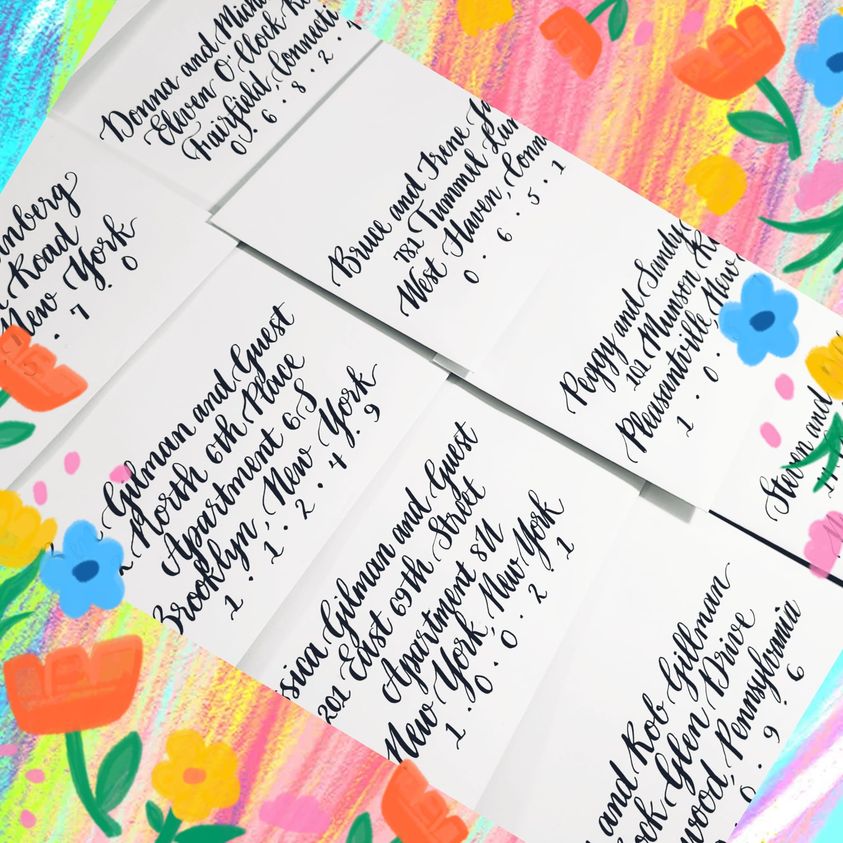 Donna and
Eleven O'Clock
Fairfield, Connecti
0 . 6 . 8 . 2 .
Bruce and Irene
781 Trummel Lan
West Haven, Conn
0 . 6 . 5 . 1
Peggy and Sundy
101 Munson
Pleasantville, New
1 . 0 .
Steven and
nberg
Road
New York
. 7 . 0
Gilman and Guest
North 6th Place
Apartment 6S
Brooklyn, New York
1 . 1 . 2 . 4 . 9
ssica Gilman and Guest
201 East 69th Street
Apartment 8N
New York, New York
1 . 0 . 0 . 2 . 1
and Rob Gillman
ock Glen Drive
wood, Pennsylvania
0 . 9 . 6